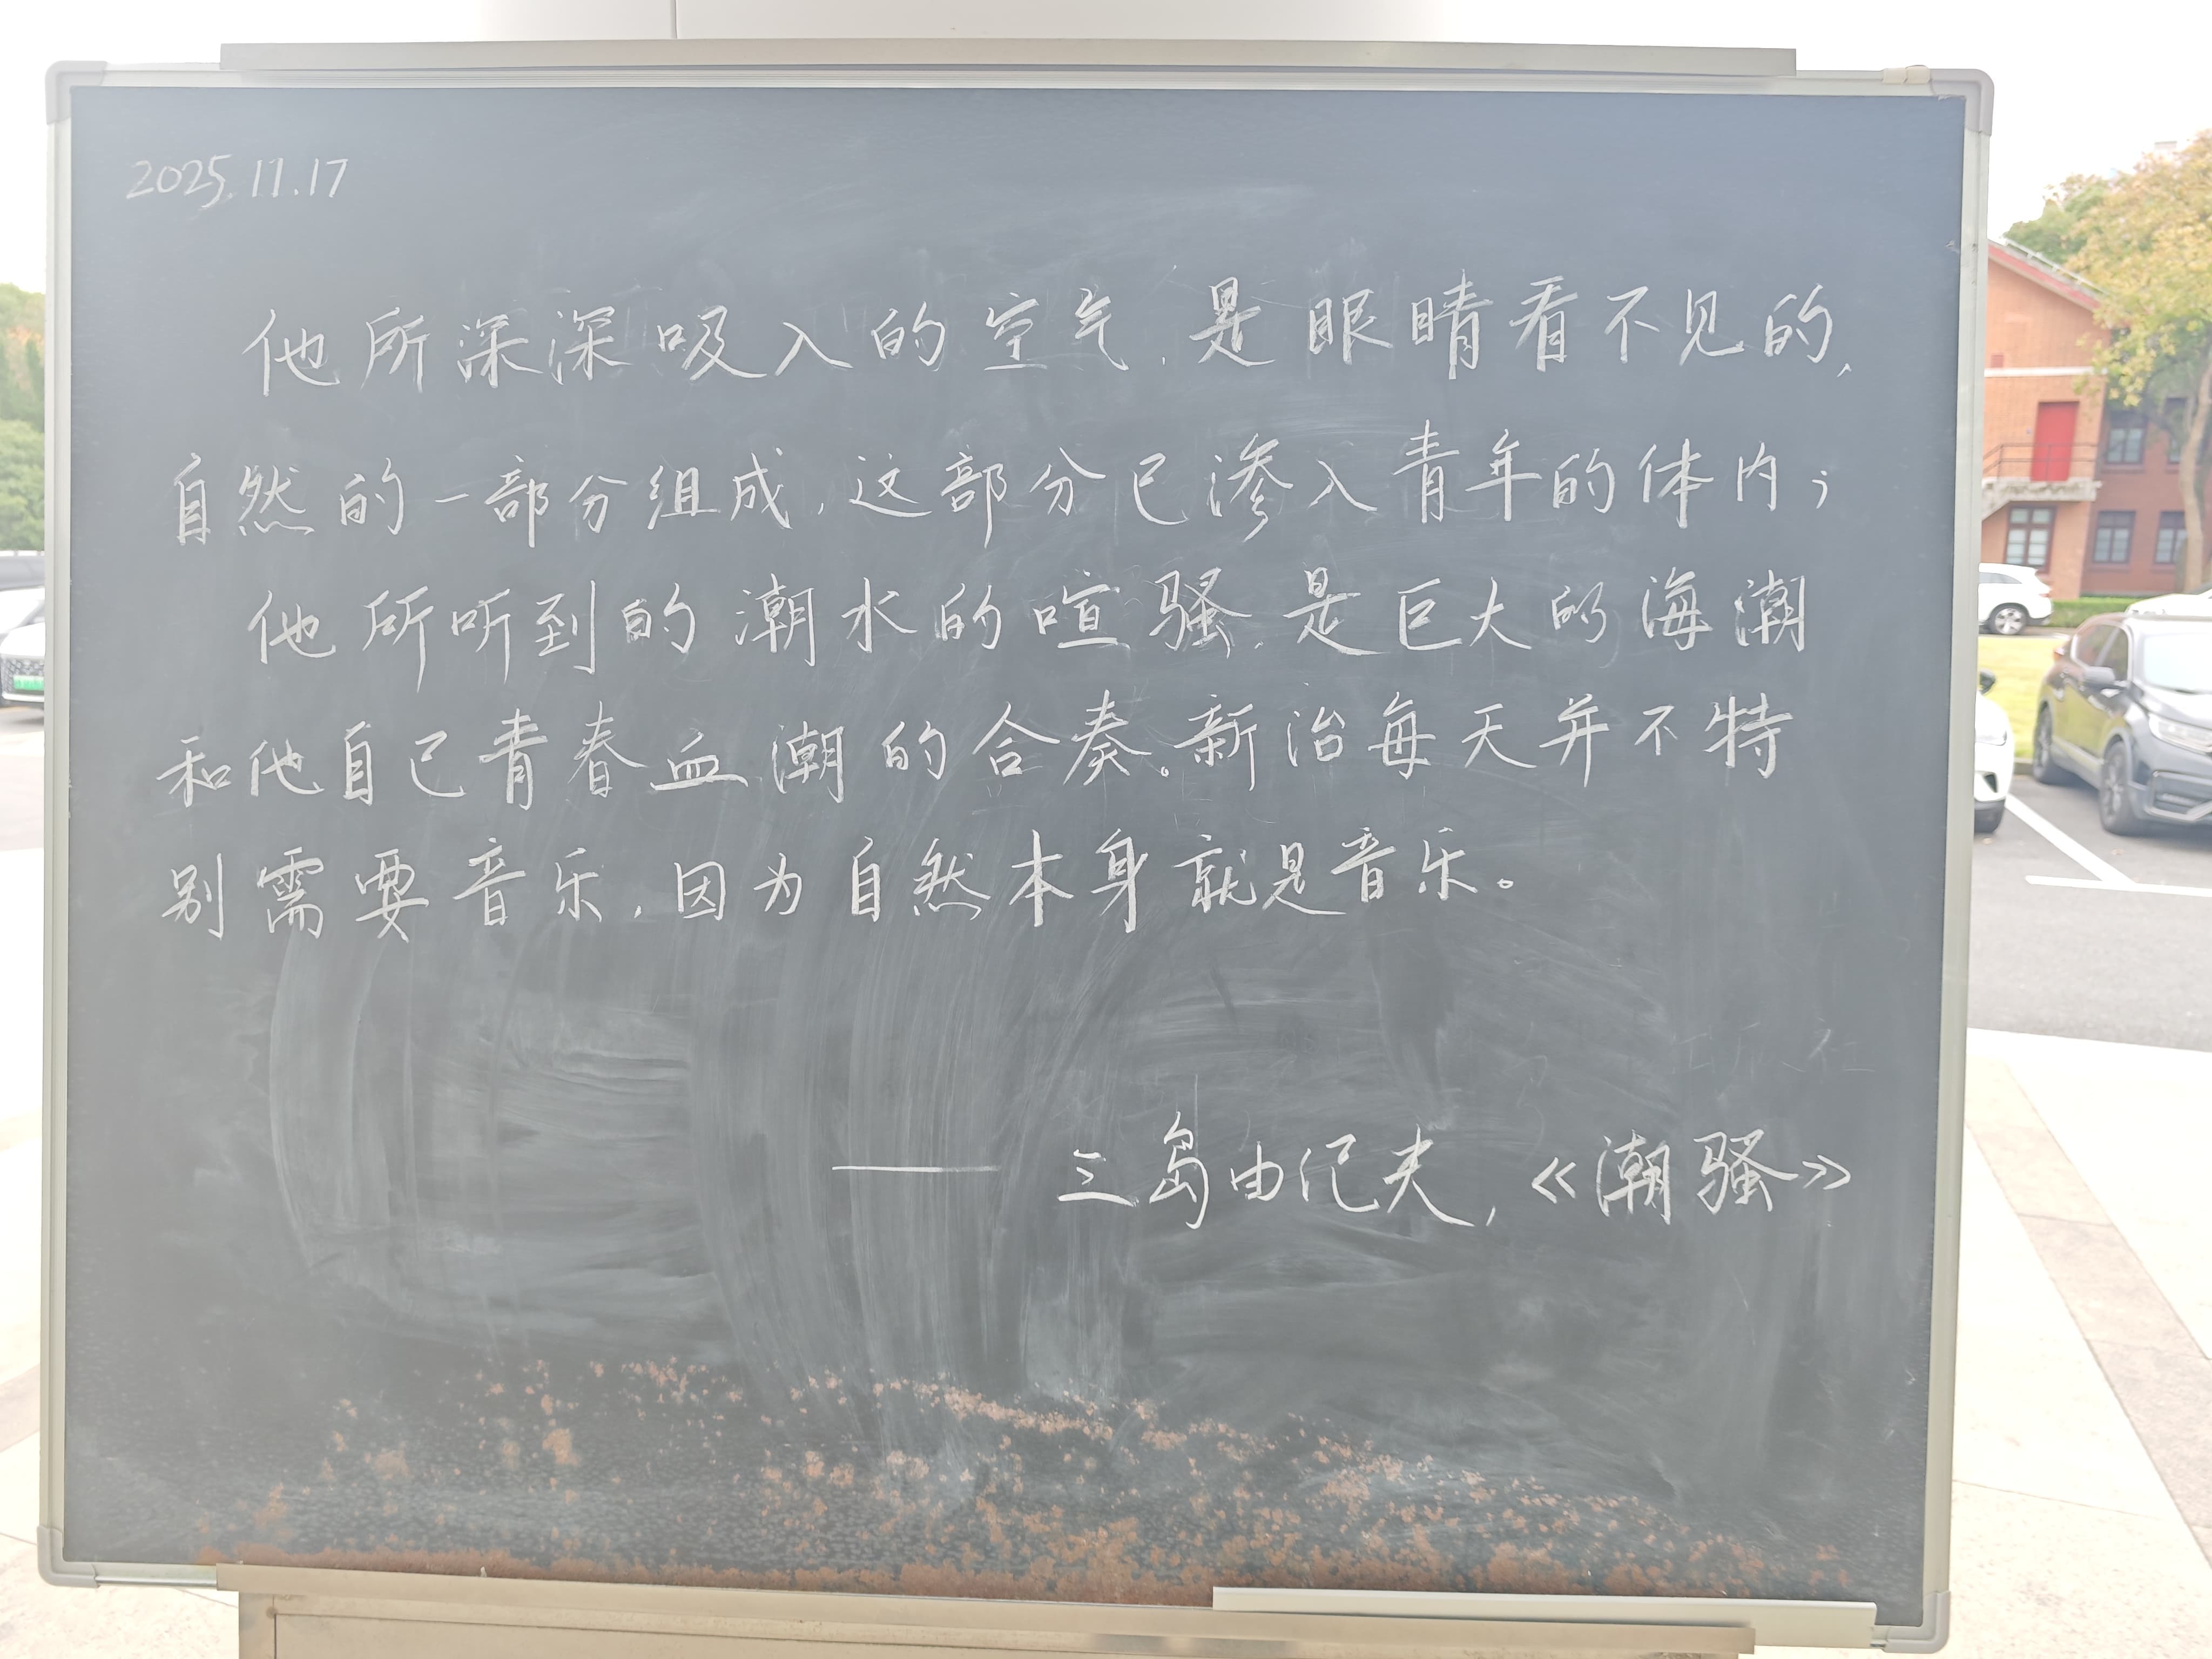 2025.11.17
他所深深吸入的空气,是眼睛看不见的,
自然的一部分组成,这部分已渗入青年的体内;
他所听到的潮水的喧骚,是巨大的海潮
和他自己青春血潮的合奏。新治每天并不特
别需要音乐,因为自然本身就是音乐。
—— 三岛由纪夫,《潮骚》